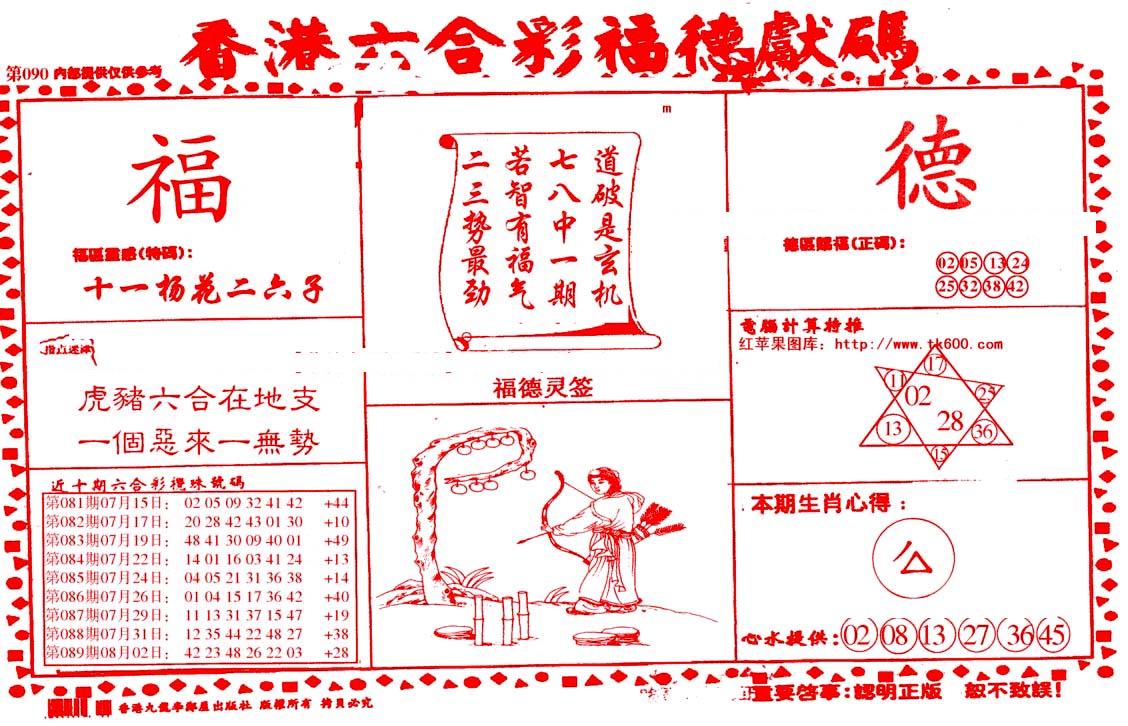 香港六合彩福德獻碼
第090 内部提供仅供参考
福
福區靈感(特碼):
十一杨花二六子
m
道破是玄机
七八中一期
若智有福气
二三势最劲
福德灵签
德
德區賜福(正碼):
02 05 13 24
25 32 38 42
虎豬六合在地支
一個惡來一無勢
電腦計算特推
红苹果图库: http://www.tk600.com
17
11 02 25
28
13 36
15
近十期六合彩攪珠號碼
第081期07月15日: 02 05 09 32 41 42 +44
第082期07月17日: 20 28 42 43 01 30 +10
第083期07月19日: 48 41 30 09 40 01 +49
第084期07月22日: 14 01 16 03 41 24 +13
第085期07月24日: 04 05 21 31 36 38 +14
第086期07月26日: 01 04 15 17 36 42 +40
第087期07月29日: 11 13 31 37 15 47 +19
第088期07月31日: 12 35 44 22 48 27 +38
第089期08月02日: 42 23 48 26 22 03 +28
本期生肖心得:
心水提供: 02 08 13 27 36 45
重要啓事:認明正版 恕不致誤!
版權所有 拷貝必究